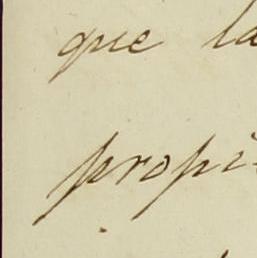 que la
propi